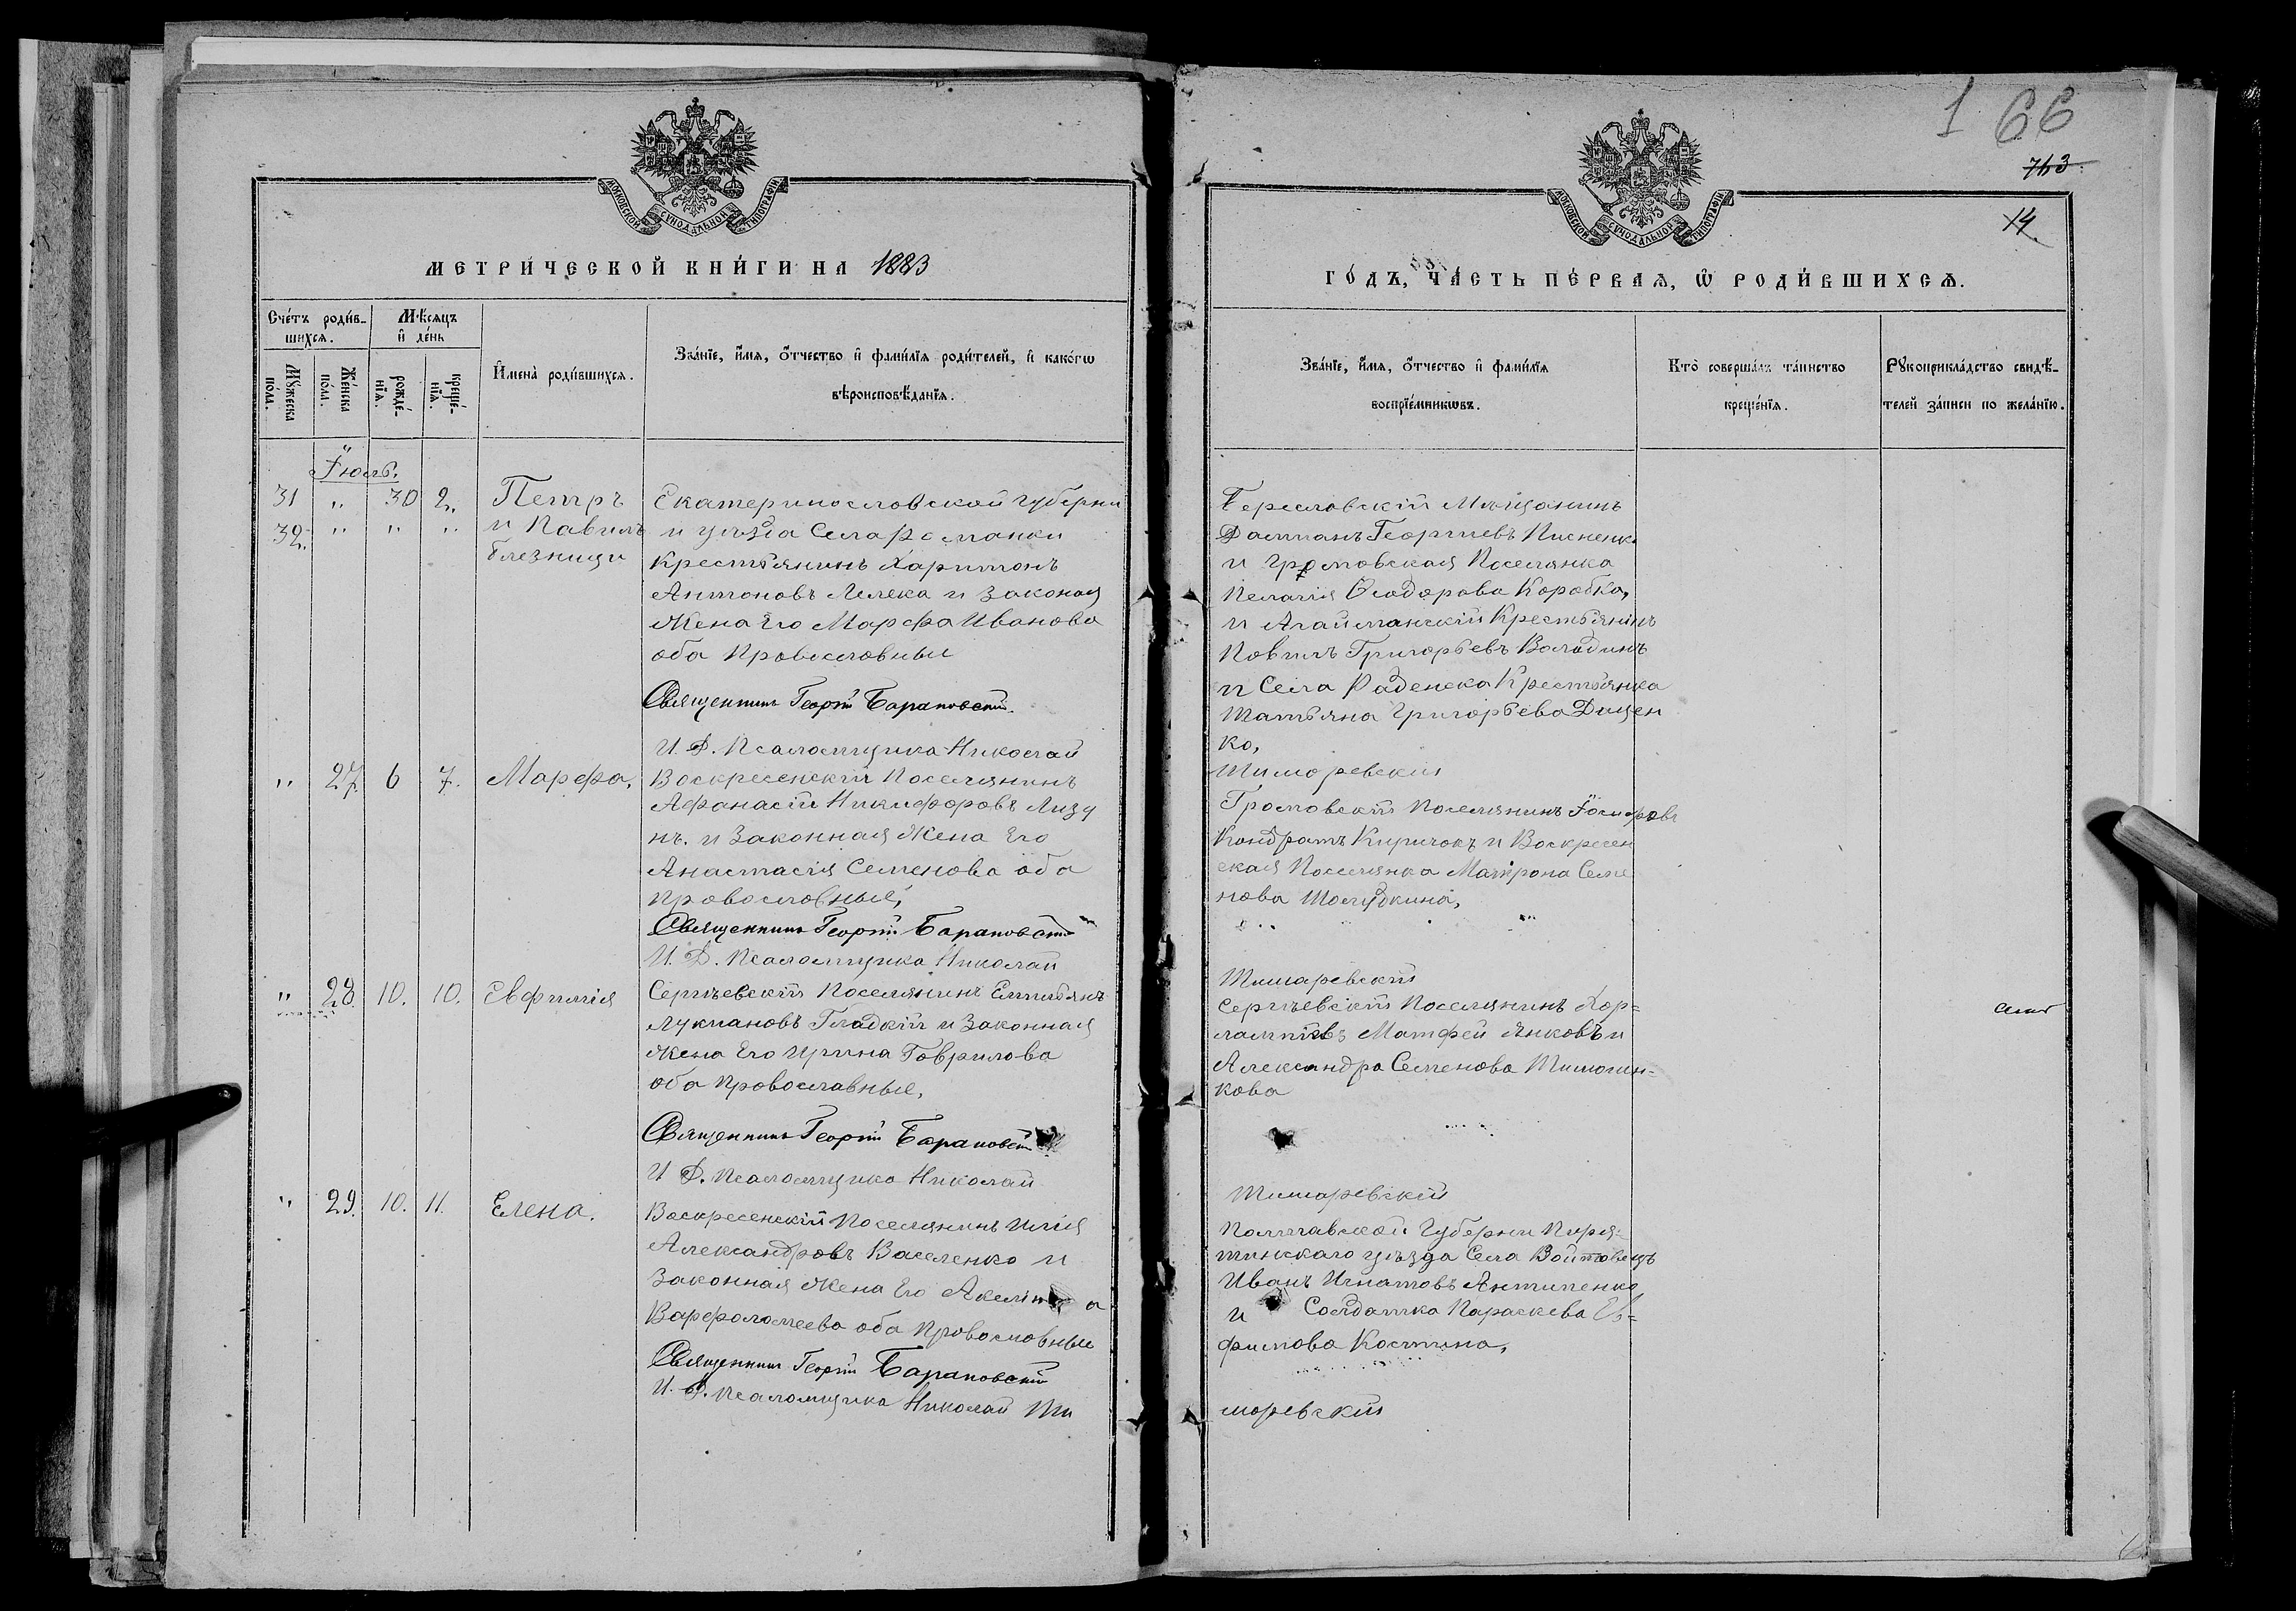 МОСКОВСКОЙ СУНОДАЛЬНОЙ ТИПОГРАФІИ
МЕТРИ́ЧЕСКОЙ КНИ́ГИ НА 1883
Сче́тъ роди́в-
шихсѧ.
Мѣ́сѧцъ
и҆ де́нь
Мꙋ́жеска
по́ла.
Же́нска
по́ла.
рожде́-
нїѧ.
креще́-
нїѧ.
И҆мена̀ роди́вшихсѧ.
Зва́нїе, и҆́мѧ, ѻ҆́тчество и҆ фами́лїѧ роди́телей, и҆ како́гѡ
вѣроисповѣ́данїѧ.
Іюль.
31 " 30 2" Петръ Екатеринославской губерни
32" " " " и Павилъ и уѣзда Села Романки
близнищи Крестьянинъ Харитонъ
Антоновъ Лелека и Законая
Жена Его Марфа Иванова
оба Православныи
Священникъ Георгій Барановскій
И. Д. Псаломщика Николай
" 27. 6 7. Марфа, Воскресенскій Поселянинъ
Афанасій Никифоровъ Лизу
нъ. и Законная Жена Его
Анастасія Семенова оба
провословные,
Священникъ Георгій Барановскій
И. Д. Псаломщика Николай
" 28. 10. 10. Евфимія Сергѣевскій Поселянинъ Емильянъ
Лукиановъ Гладкій и Законная
Жена Его Ирина Гаврилова
оба Провославные,
Священникъ Георгій Барановскій
И Д. Псаломщика Николай
" 29. 10. 11. Елена. Воскресенскій Поселянинъ Илія
Александровъ Василенко и
Законная Жена Его Акелина
Варфоломеева оба Провословные
Священникъ Георгій Барановскій
И. Д. Псаломщика Николай Ти
1 66
14
МОСКОВСКОЙ СУНОДАЛЬНОЙ ТИПОГРАФІИ
ГО́ДЪ, ЧА́СТЬ ПЕ́РВАѦ, Ѡ҆ РОДИ́ВШИХСѦ.
Зва́нїе, и҆́мѧ, ѻ҆́тчество и҆ фами́лїѧ
воспрїе́мникѡвъ.
Кто̀ соверша́лъ та́инство
креще́нїѧ.
Рꙋкоприкла́дство свидѣ́-
телей за́писи по жела́нїю.
Береславскій Мѣщанинъ
Дамианъ Георгиевъ Писненко
и Громовская Поселянка
Пелагія Ѳеодорова Коробка,
и Агайманскій Крестьянинъ
Повилъ Григорьевъ Володинъ
и Села Раденска Крестьянка
Татьяна Григорьева Диден
ко,
Тиморевскій
Громовскій Поселянинъ Іосифовъ
Кондратъ Киричокъ и Воскресен
ская Поселянка Матрона Семе
нова Шолудкина,
Тимаревскій
Сергѣевскій Поселянинъ Хор=
лампіевъ Матфей Янковъ и
Александра Семенова Тимошен=
кова
Тимаревскій
Полтавской Губерни Пиря=
тинскаго уѣзда Села Войтовецъ
Иванъ Игнатовъ Антипенко
и Солдатка Параскева Ев=
фимова Костина,
моревскій